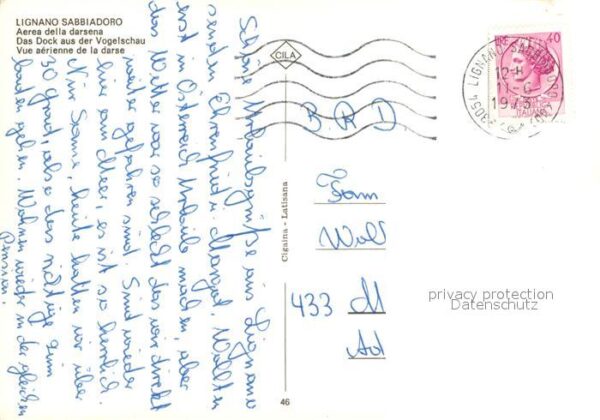 LIGNANO SABBIADORO
Aerea della darsena
Das Dock aus der Vogelschau
Vue aérienne de la darse
CILA
LIRE 40
ITALIANE
33054 LIGNANO SABBIADORO (UD)
12-H
11-6
1973
Schöne Urlaubsgrüße aus Lignano
senden Ehrenfried u. Margot. Wollten
erst in Österreich Urlaub machen, aber
das Wetter war so schlecht das wir direkt
weiter gefahren sind. Sind wieder
hier am Meer, es ist so herrlich.
Nur Sonne, heute hatten wir über
30 Grad, also das richtige zum
baden gehen. Wohnen wieder in der gleichen
Pension.
Cigaina - Latisana
B.R.D.
Fam
Wolf
433 M
Ad
privacy protection
Datenschutz
46